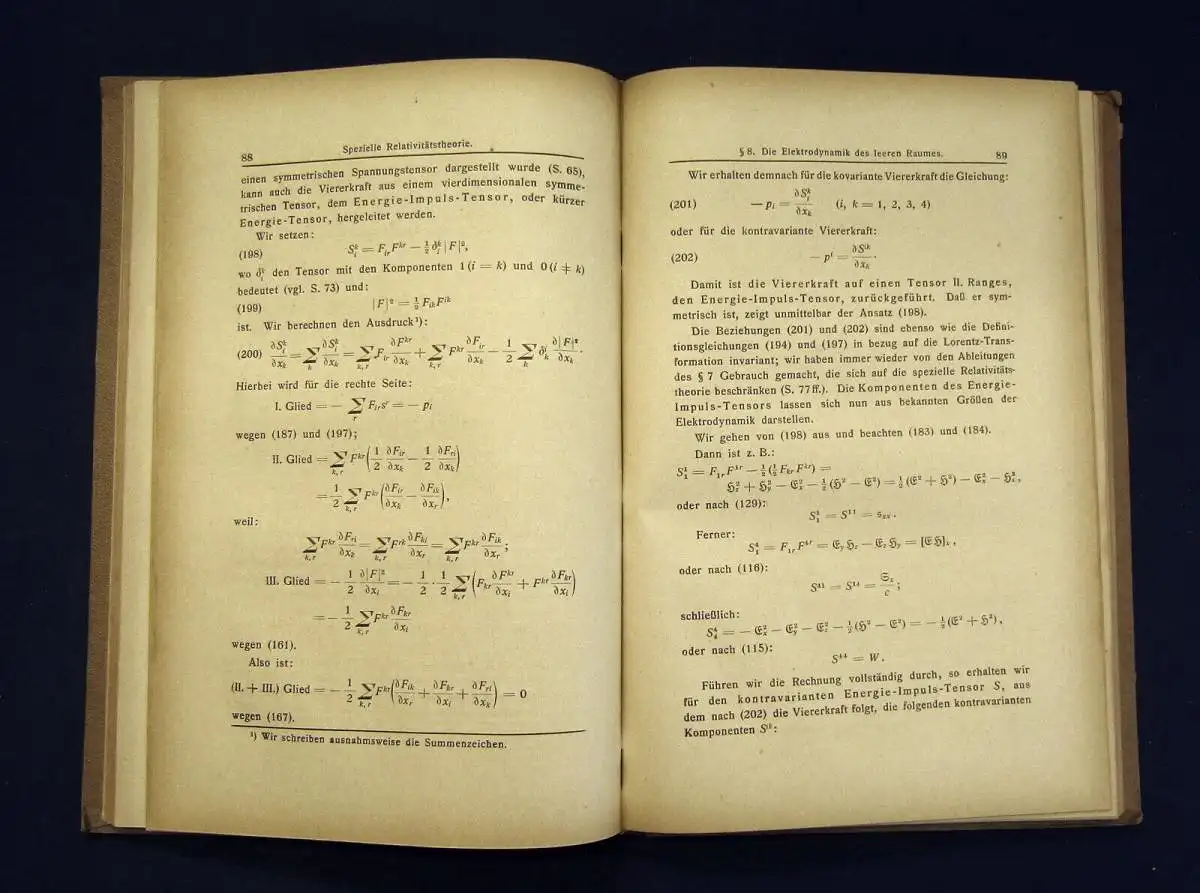 88
Spezielle Relativitätstheorie.
einen symmetrischen Spannungstensor dargestellt wurde (S. 65),
kann auch die Viererkraft aus einem vierdimensionalen symme-
trischen Tensor, dem Energie-Impuls-Tensor, oder kürzer
Energie-Tensor, hergeleitet werden.
Wir setzen:
(198) Sᵢᵏ = Fᵢᵣ Fᵏʳ − ½ δᵢᵏ |F|²,
wo δᵢᵏ den Tensor mit den Komponenten 1 (i = k) und 0 (i ≠ k)
bedeutet (vgl. S. 73) und:
(199) |F|² = ½ Fᵢₖ Fⁱᵏ
ist. Wir berechnen den Ausdruck¹):
(200) ∂Sᵢᵏ/∂xₖ = ∑ₖ ∂Sᵢᵏ/∂xₖ = ∑ₖ,ᵣ Fᵢᵣ ∂Fᵏʳ/∂xₖ + ∑ₖ,ᵣ Fᵏʳ ∂Fᵢᵣ/∂xₖ − 1/2 ∑ₖ δₖⁱ ∂|F|²/∂xₖ.
Hierbei wird für die rechte Seite:
I. Glied = − ∑ᵣ Fᵢᵣ sʳ = − pᵢ
wegen (187) und (197);
II. Glied = ∑ₖ,ᵣ Fᵏʳ (1/2 ∂Fᵢᵣ/∂xₖ − 1/2 ∂Fᵣᵢ/∂xₖ)
= 1/2 ∑ₖ,ᵣ Fᵏʳ (∂Fᵢᵣ/∂xₖ − ∂Fᵢₖ/∂xᵣ),
weil:
∑ₖ,ᵣ Fᵏʳ ∂Fᵣᵢ/∂xₖ = ∑ₖ,ᵣ Fʳᵏ ∂Fₖᵢ/∂xᵣ = ∑ₖ,ᵣ Fᵏʳ ∂Fᵢₖ/∂xᵣ;
III. Glied = − 1/2 ∂|F|²/∂xᵢ = − 1/2 · 1/2 ∑ₖ,ᵣ (Fₖᵣ ∂Fᵏʳ/∂xᵢ + Fᵏʳ ∂Fₖᵣ/∂xᵢ)
= − 1/2 ∑ₖ,ᵣ Fᵏʳ ∂Fₖᵣ/∂xᵢ
wegen (161).
Also ist:
(II. + III.) Glied = − 1/2 ∑ₖ,ᵣ Fᵏʳ (∂Fᵢₖ/∂xᵣ + ∂Fₖᵣ/∂xᵢ + ∂Fᵣᵢ/∂xₖ) = 0
wegen (167).
¹) Wir schreiben ausnahmsweise die Summenzeichen.
§ 8. Die Elektrodynamik des leeren Raumes. 89
Wir erhalten demnach für die kovariante Viererkraft die Gleichung:
(201) − pᵢ = ∂Sᵢᵏ/∂xₖ (i, k = 1, 2, 3, 4)
oder für die kontravariante Viererkraft:
(202) − pⁱ = ∂Sⁱᵏ/∂xₖ.
Damit ist die Viererkraft auf einen Tensor II. Ranges,
den Energie-Impuls-Tensor, zurückgeführt. Daß er sym-
metrisch ist, zeigt unmittelbar der Ansatz (198).
Die Beziehungen (201) und (202) sind ebenso wie die Defini-
tionsgleichungen (194) und (197) in bezug auf die Lorentz-Trans-
formation invariant; wir haben immer wieder von den Ableitungen
des § 7 Gebrauch gemacht, die sich auf die spezielle Relativitäts-
theorie beschränken (S. 77 ff.). Die Komponenten des Energie-
Impuls-Tensors lassen sich nun aus bekannten Größen der
Elektrodynamik darstellen.
Wir gehen von (198) aus und beachten (183) und (184).
Dann ist z. B.:
S₁¹ = F₁ᵣ F¹ʳ − ½ (½ Fₖᵣ Fᵏʳ) =
ℌ_z² + ℌ_y² − 𝔈_x² − ½ (ℌ² − 𝔈²) = ½ (𝔈² + ℌ²) − 𝔈_x² − ℌ_x²,
oder nach (129):
S₁¹ = S¹¹ = s_xx.
Ferner:
S₁⁴ = F₁ᵣ F⁴ʳ = 𝔈_y ℌ_z − 𝔈_z ℌ_y = [𝔈ℌ]_x,
oder nach (116):
S⁴¹ = S¹⁴ = 𝔖_x/c;
schließlich:
S₄⁴ = − 𝔈_x² − 𝔈_y² − 𝔈_z² − ½ (ℌ² − 𝔈²) = − ½ (𝔈² + ℌ²),
oder nach (115):
S⁴⁴ = W.
Führen wir die Rechnung vollständig durch, so erhalten wir
für den kontravarianten Energie-Impuls-Tensor S, aus
dem nach (202) die Viererkraft folgt, die folgenden kontravarianten
Komponenten Sⁱᵏ: